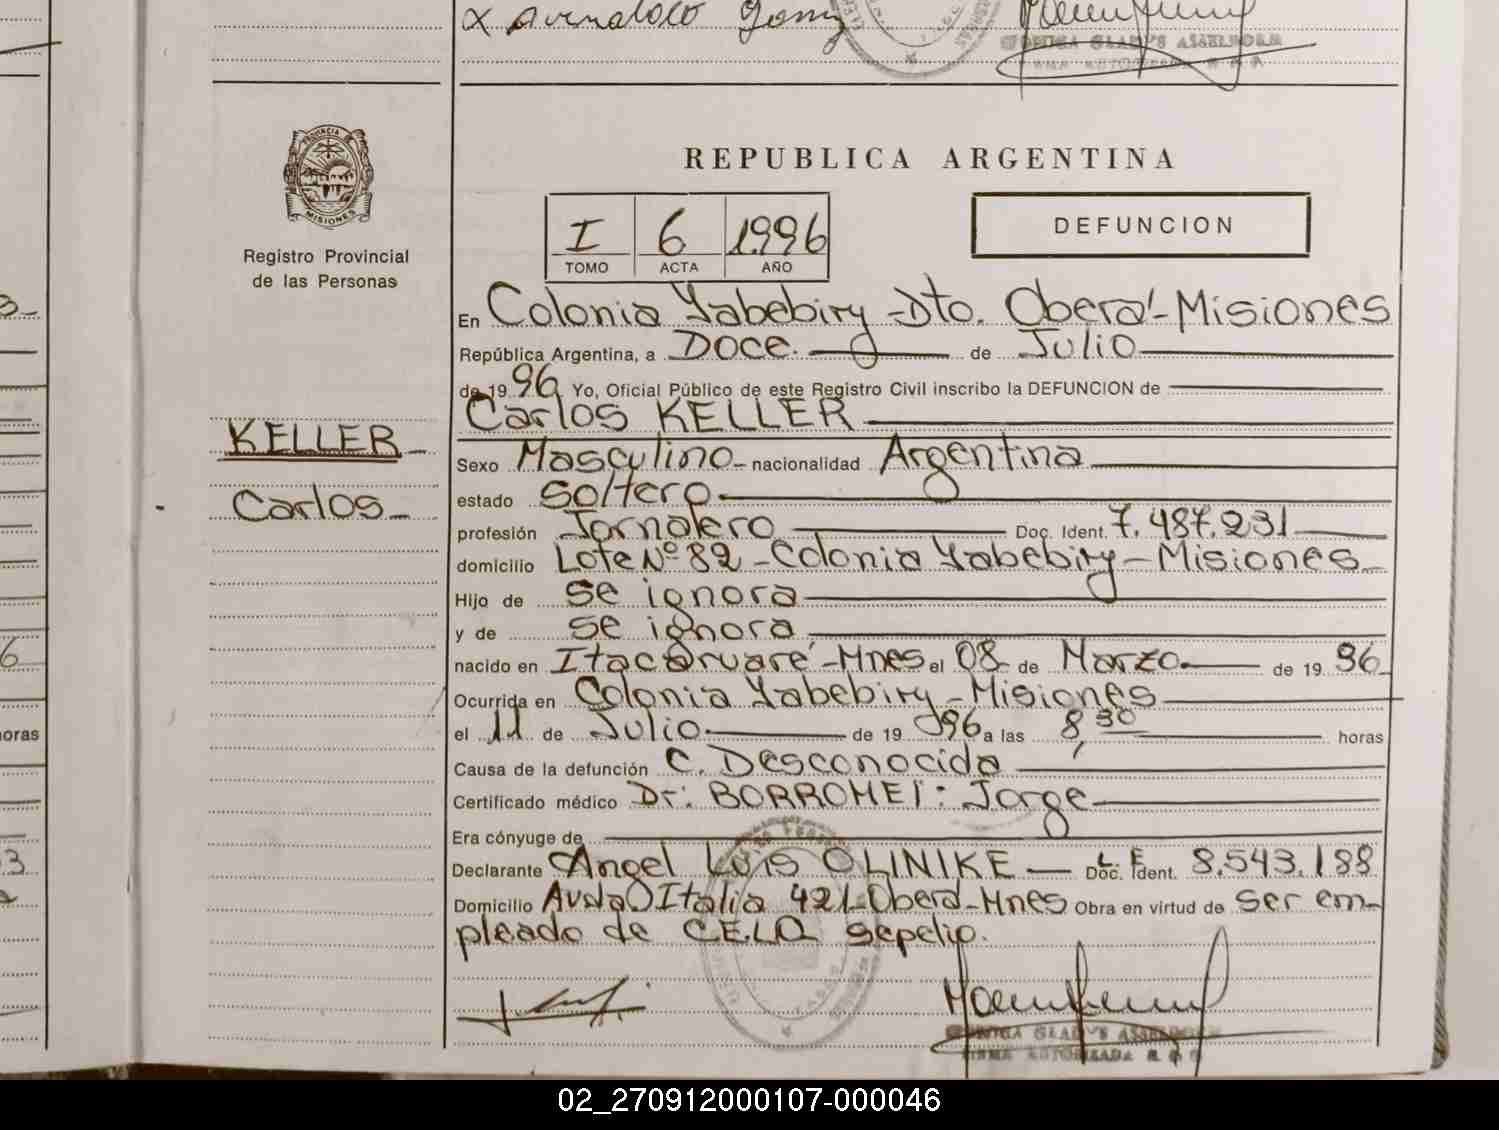 REPUBLICA ARGENTINA
PROVINCIA DE
MISIONES
Registro Provincial
de las Personas
I 6 1996
TOMO ACTA AÑO
DEFUNCION
KELLER
Carlos
En Colonia Yabebiry - Dto. Oberá - Misiones
República Argentina, a Doce. de Julio
de 19 96 Yo, Oficial Público de este Registro Civil inscribo la DEFUNCION de
Carlos KELLER
Sexo Masculino - nacionalidad Argentina
estado Soltero
profesión Jornalero Doc. Ident. 7.487.231
domicilio Lote Nº 82 - Colonia Yabebiry - Misiones
Hijo de se ignora
y de se ignora
nacido en Itacaruaré - Mnes el 08 de Marzo de 19 36
Ocurrida en Colonia Yabebiry - Misiones
el 11 de Julio de 19 96 a las 8,30 horas
Causa de la defunción C. Desconocida
Certificado médico Dr: BORROMEI: Jorge
Era cónyuge de
Declarante Angel Luis OLINIKE L. E. Doc. Ident. 8.543.188
Domicilio Avda Italia 421 - Oberá - Mnes Obra en virtud de ser em-
pleado de C.E.L.O. Sepelio.
GLADYS ASSELBORN
FIRMA AUTORIZADA
02_270912000107-000046